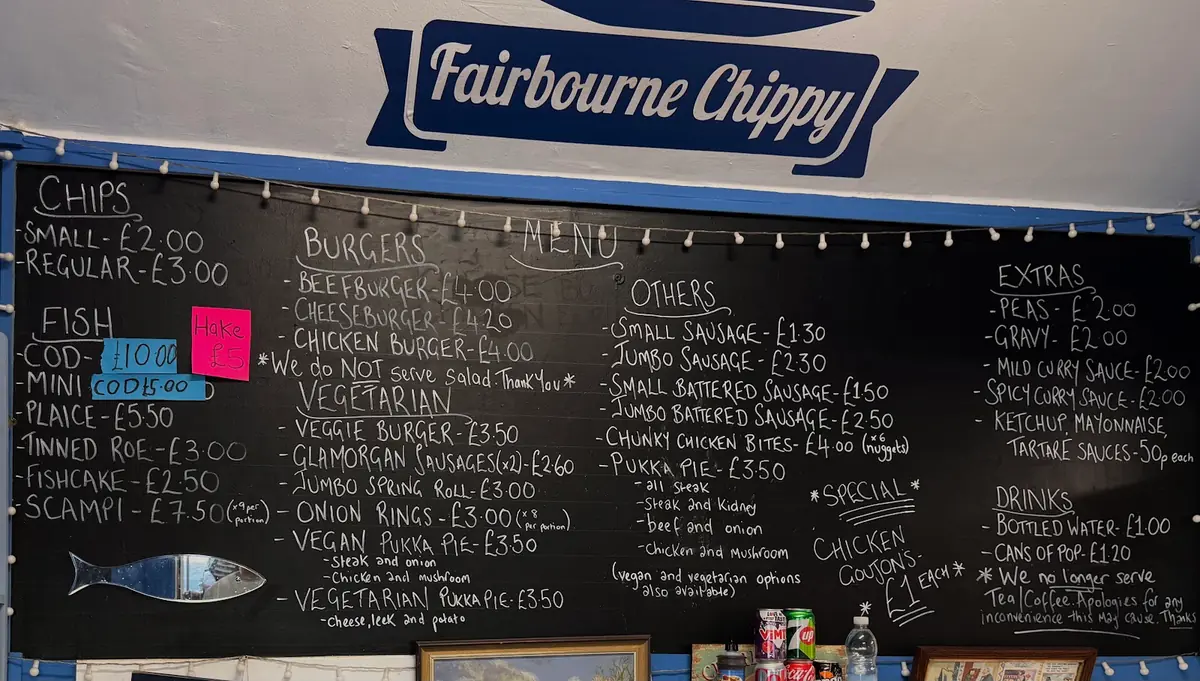 Fairbourne Chippy
MENU
CHIPS
-SMALL-£2.00
-REGULAR-£3.00
FISH
-COD-£10.00
Hake
£5
-MINI COD £5.00
-PLAICE-£5.50
-TINNED ROE-£3.00
-FISHCAKE-£2.50
-SCAMPI-£7.50 (x9 per portion)
BURGERS
-BEEFBURGER-£4.00
-CHEESEBURGER-£4.20
-CHICKEN BURGER-£4.00
*We do NOT serve salad. Thank You*
VEGETARIAN
-VEGGIE BURGER-£3.50
-GLAMORGAN SAUSAGES(x2)-£2.60
-JUMBO SPRING ROLL-£3.00
-ONION RINGS-£3.00 (x8 per portion)
-VEGAN PUKKA PIE-£3.50
-steak and onion
-chicken and mushroom
-VEGETARIAN PUKKA PIE-£3.50
-cheese, leek and potato
OTHERS
-SMALL SAUSAGE-£1.30
-JUMBO SAUSAGE-£2.30
-SMALL BATTERED SAUSAGE-£1.50
-JUMBO BATTERED SAUSAGE-£2.50
-CHUNKY CHICKEN BITES-£4.00 (x6 nuggets)
-PUKKA PIE-£3.50
-all steak
-steak and kidney
-beef and onion
-chicken and mushroom
(vegan and vegetarian options
also available)
*SPECIAL*
CHICKEN
GOUJONS-
£1 EACH*
EXTRAS
-PEAS-£2.00
-GRAVY-£2.00
-MILD CURRY SAUCE-£2.00
-SPICY CURRY SAUCE-£2.00
-KETCHUP, MAYONNAISE,
TARTARE SAUCES-50p each
DRINKS
-BOTTLED WATER-£1.00
-CANS OF POP-£1.20
*We no longer serve
Tea/Coffee. Apologies for any
inconvenience this may cause. Thanks
VIMTO
up